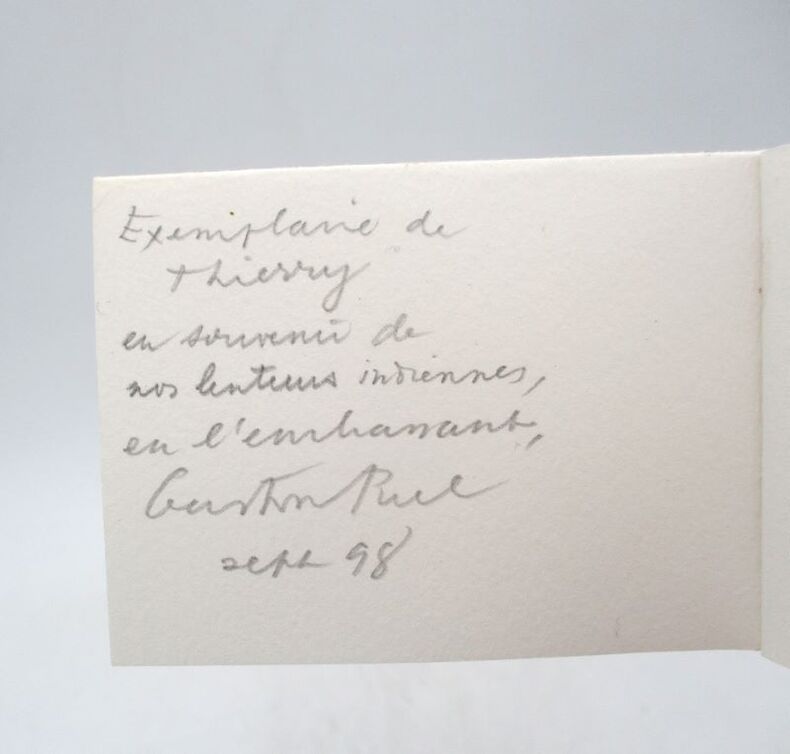 Exemplaire de
Thierry
en souvenir de
nos lenteurs indiennes,
en l'embrassant,
Gaston Puel
sept 98